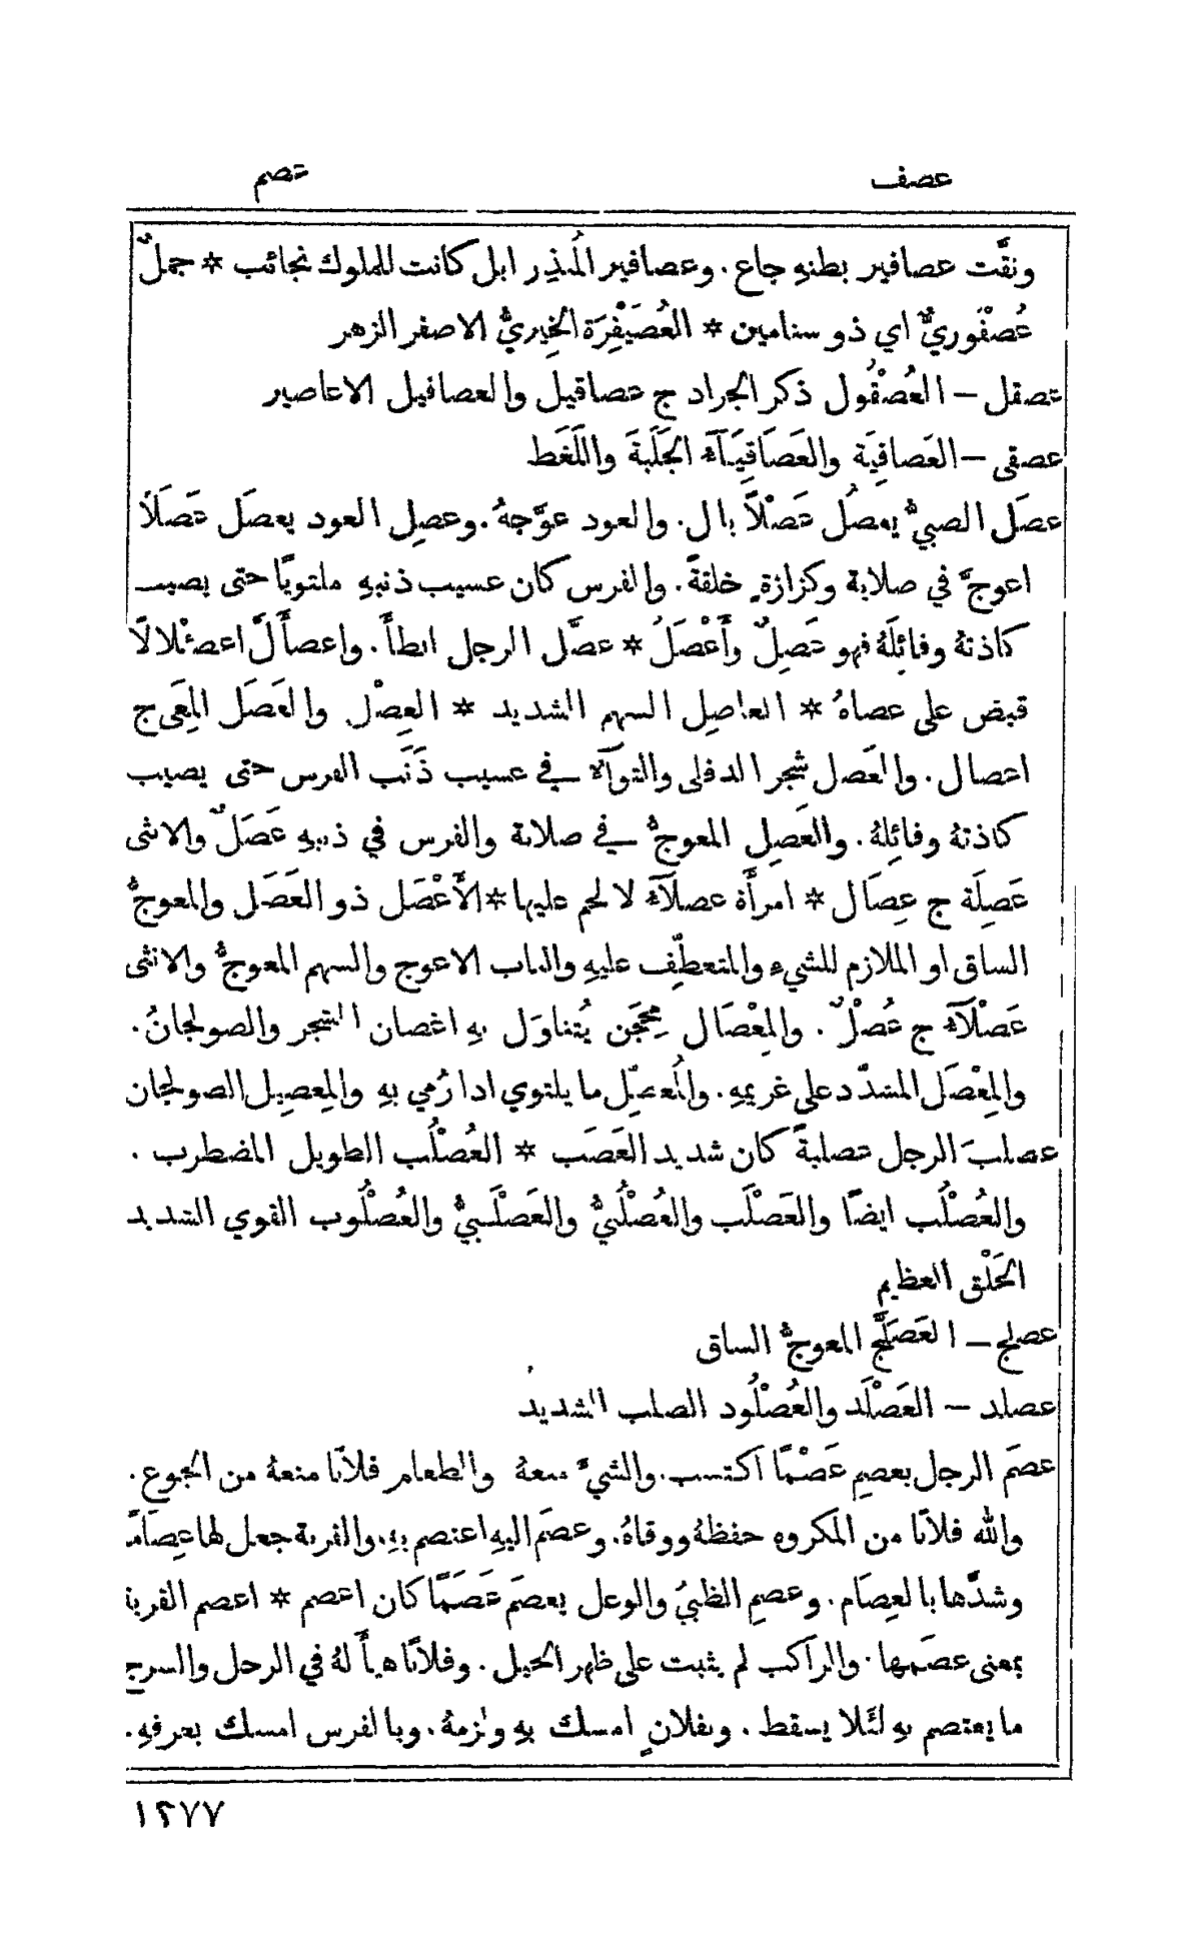 عصف
عصم
ونقَّت عصافير بطنهِ جاع. وعصافير المُنذِر ابل كانت للملوك نجائب * جملٌ
عُصْفُوريٌّ اي ذو سنامين * العُصَيْفِرَة الخِيريُّ الاصفر الزهر
عصقل — العُصْقُول ذكر الجراد ج عصاقيل والعصافيل الاعاصير
عصقى — العَصافِيَة والعَصَاقِيَآء الجَلَبَة واللَغَط
عصَل الصبيُّ يعصُل عَصْلاً بال. والعود عوَّجهُ. وعصِل العود يعصَل عَصَلاً
اعوجَّ في صلابة وكزازةٍ خلقةً. والفرس كان عسيب ذنبهِ ملتويًا حتى يصيب
كاذتهُ وفائِلَهُ فهو عَصِلٌ وأَعْصَلُ * عصَّل الرجل ابطأَ. واعصأَلَّ اعصئلالاً
قبض على عصاهُ * العاصِل السهم الشديد * العِصْل والعَصَل المِعَى ج
اعصال. والعَصَل شجر الدفلى والتوآء في عسيب ذَنَب الفرس حتى يصيب
كاذتهُ وفائِلهُ. والعَصِل المعوجُّ في صلابة والفرس في ذنبهِ عَصَلٌ والانثى
عَصِلَة ج عِصَال * امرأَة عصلآء لا لحم عليها * الأَعْصَل ذو العَصَل والمعوجُّ
الساق او الملازم للشيءِ والمتعطِّف عليهِ والناب الاعوج والسهم المعوجُّ والانثى
عَصْلآء ج عُصْلٌ. والمِعْصَال مِحْجَن يُتناوَل بهِ اغصان الشجر والصولجانُ.
والمِعْصَل المشدّد على غريمهِ. والمُعصِّل ما يلتوي اذا رُمي بهِ والمِعصِيل الصولجان
عصلبَ الرجل عصلبةً كان شديد العَصَب * العُصْلُب الطويل المضطرب.
والعُصْلُب ايضًا والعَصْلَب والعُصْلُبيُّ والعَصْلَبيُّ والعُصْلُوب القوي الشديد
الخَلْق العظيم
عصلج — العَصَلَّج المعوجُّ الساق
عصلد — العَصْلَد والعُصْلُود الصلب الشديد
عصَم الرجل يعصِم عَصْمًا اكتسب. والشيءَ منعهُ والطعام فلانًا منعهُ من الجوع.
والله فلانًا من المكروه حفظهُ ووقاهُ. وعصَم اليهِ اعتصم بهِ. والقربة جعل لها عِصَامًا
وشدَّها بالعِصَام. وعصِم الظبيُ والوعل يعصَم عَصَمًا كان اعصم * اعصم القربة
بمعنى عصَمها. والراكب لم يثبت على ظهر الخيل. وفلانًا هيأَ لهُ في الرحل والسرج
ما يعتصم بهِ لئَلا يسقط. وبفلانٍ امسك بهِ ولزمهُ. وبالفرس امسك بعرفهِ.
١٢٧٧